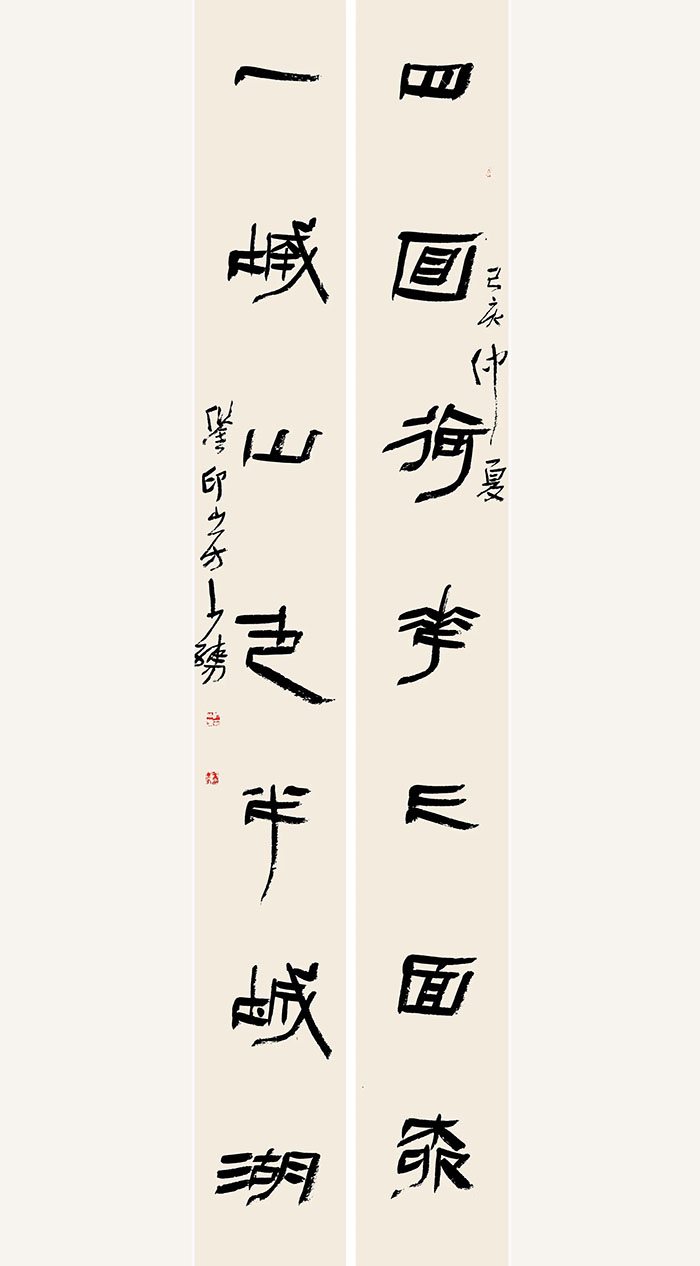 四面荷花三面柳
己亥仲夏
一城山色半城湖
鑒印山房少孺